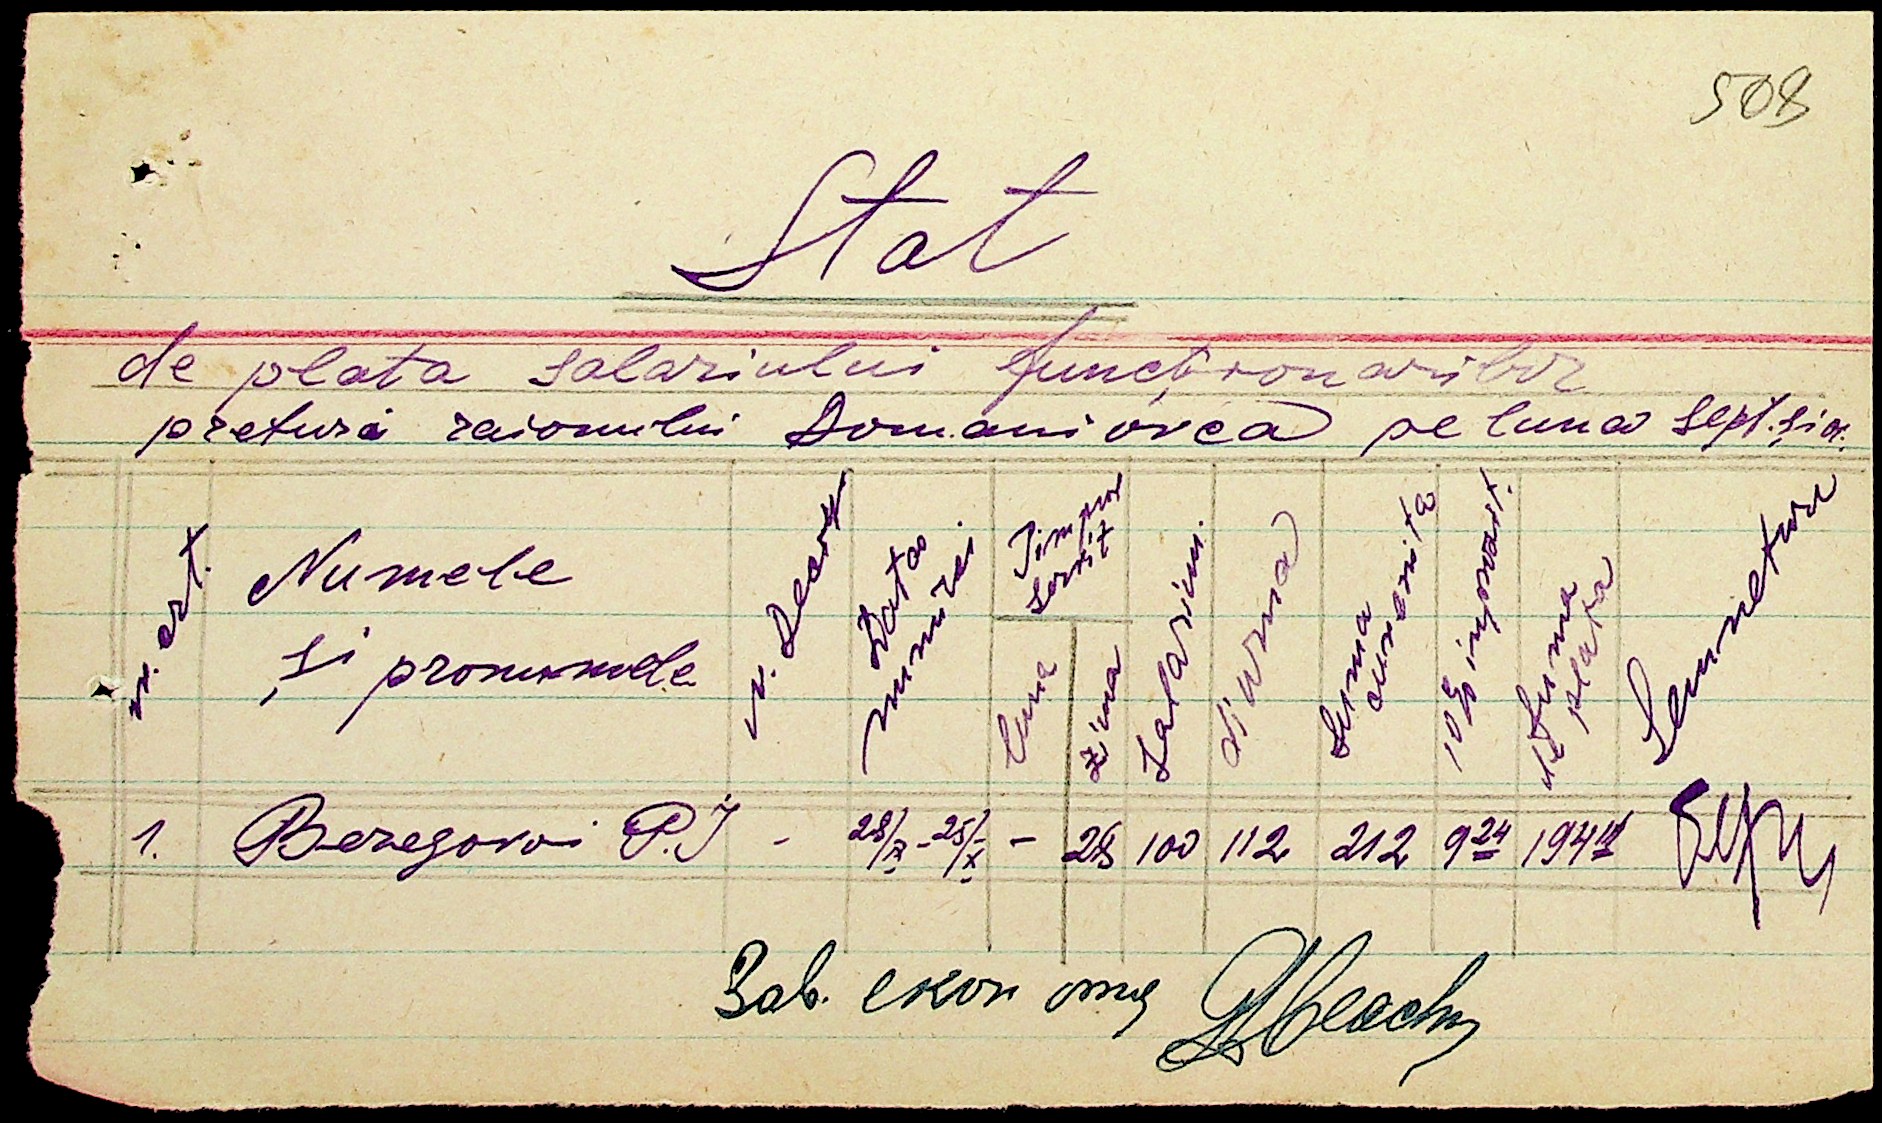 508
Stat
de plata salariului functionarilor
pretura raionului Domaniovca pe luna sept. și oc.
nr. crt. Numele și pronumele Data numirei Timpul servit luna ziua Salariu diurna Suma cuvenita 10% impozit. Suma de plata Semnetura
1. Beregovoi P. I - 28/IX - 25/X - 28 100 112 212 9 24 194
Зав. екон